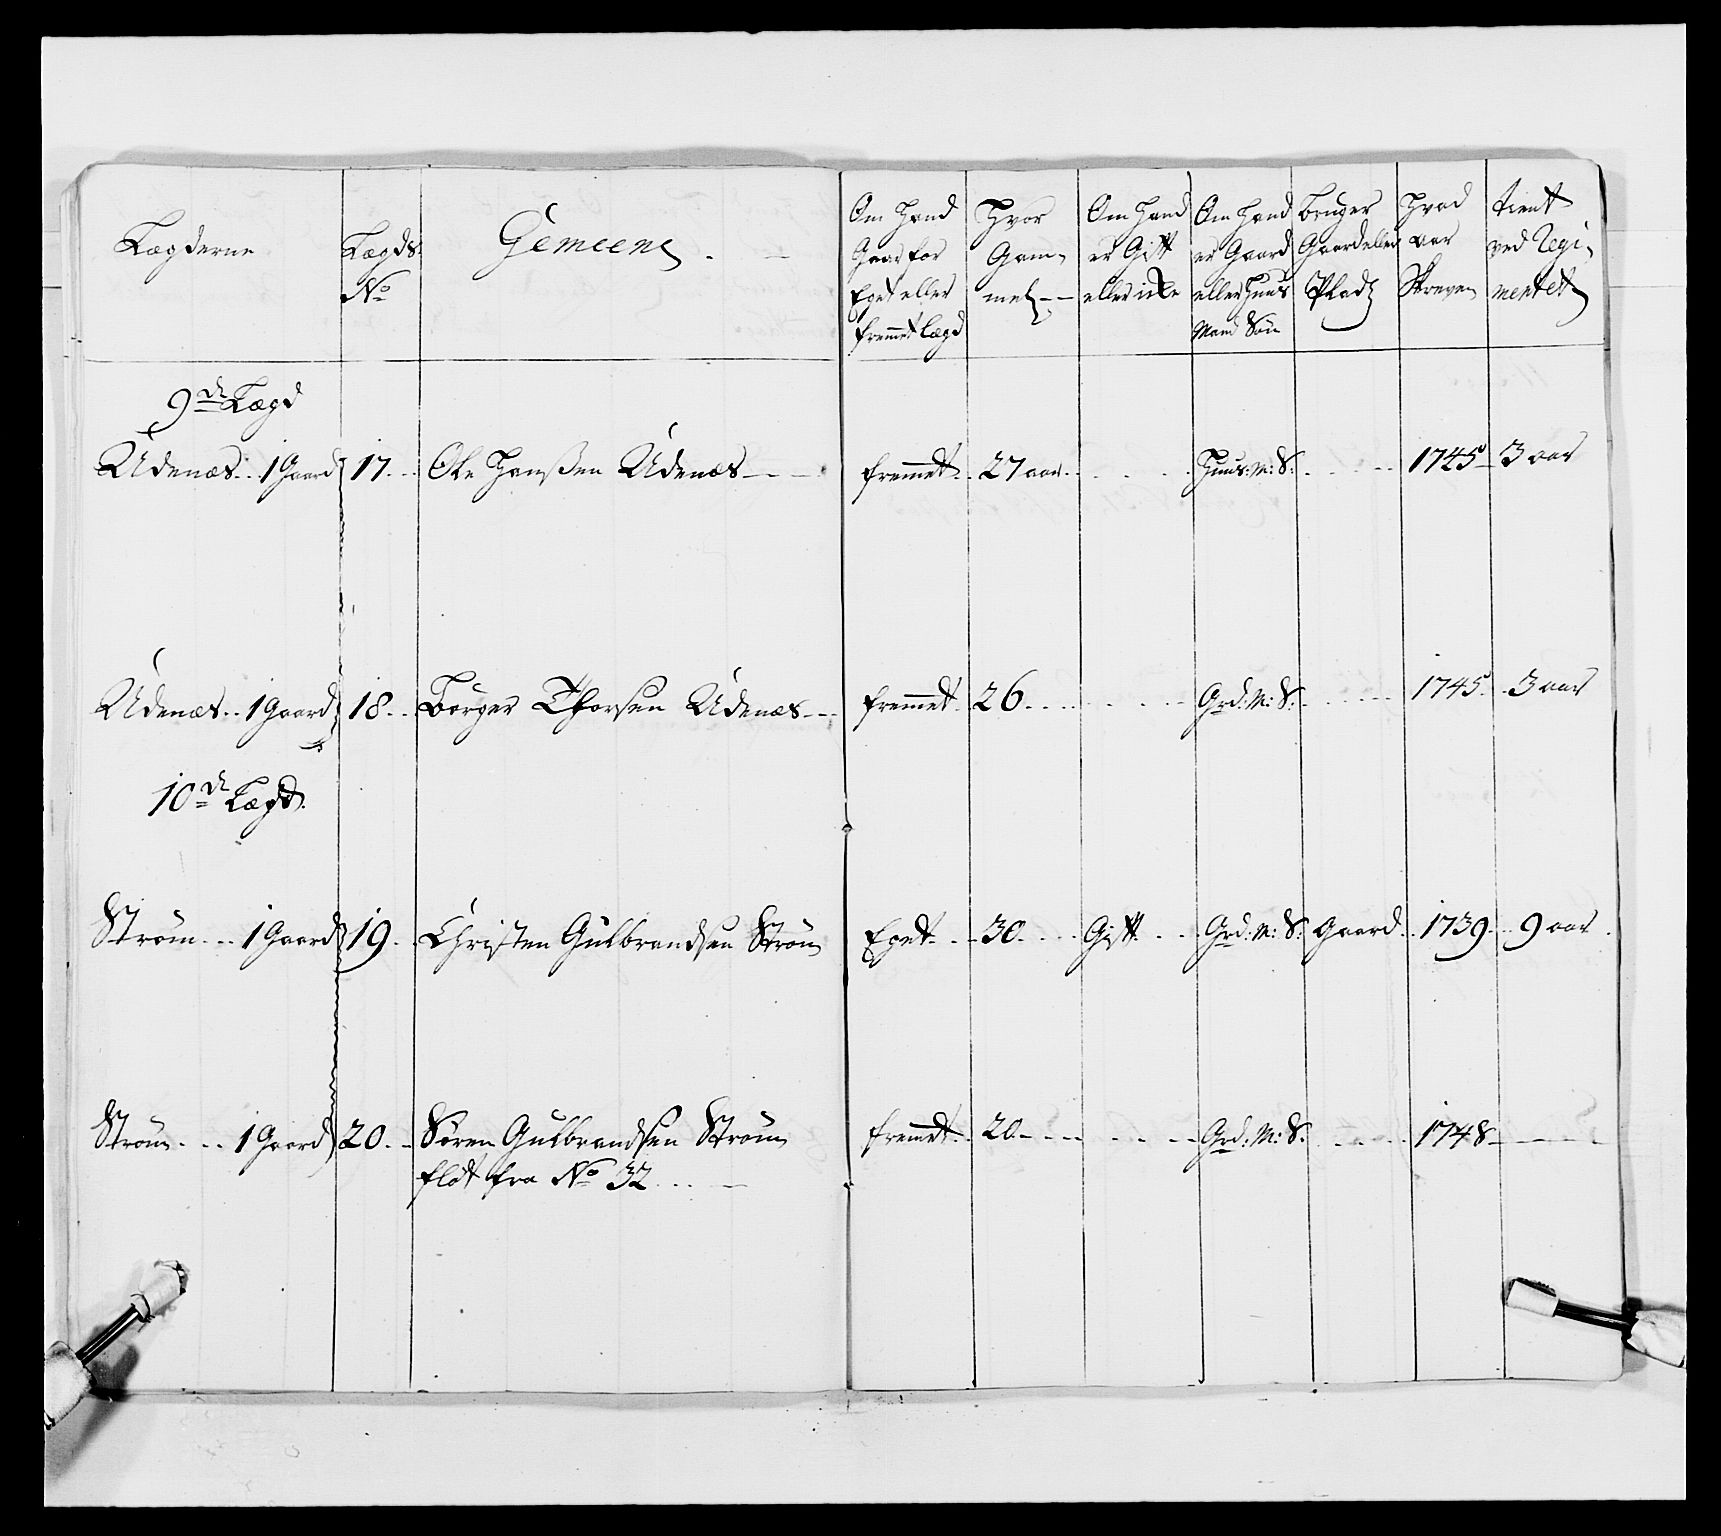 Lægderne
Lægds
No
Gemeene
Om Hand
Gaar for
Eget eller
fremet Lægd
Hvor
Gam-
mel
Om Hand
er Gift
eller ikke
Om Hand
er Gaard
eller Huus
Mand Søn
Bruger
Gaard eller
Pladz
Hvad
aar
Skreven
tient
ved Regi-
mentet
9de Lægd
Udenæs 1 Gaard 17 Ole Hanßen Udenæs fremmet 27 aar Huus: M: S: 1745 3 aar
Udenæs 1 Gaard 18 Børger Thorsen Udenæs fremmet 26 Grd: M: S: 1745 3 aar
10de Lægd
Strøm 1 Gaard 19 Christen Gulbrandsen Strøm Eget 30 Gift Grd: M: S: Gaard 1739 9 aar
Strøm 1 Gaard 20 Søren Gulbrandsen Strøm fremmet 20 Grd: M: S: 1748
fløt fra No 32